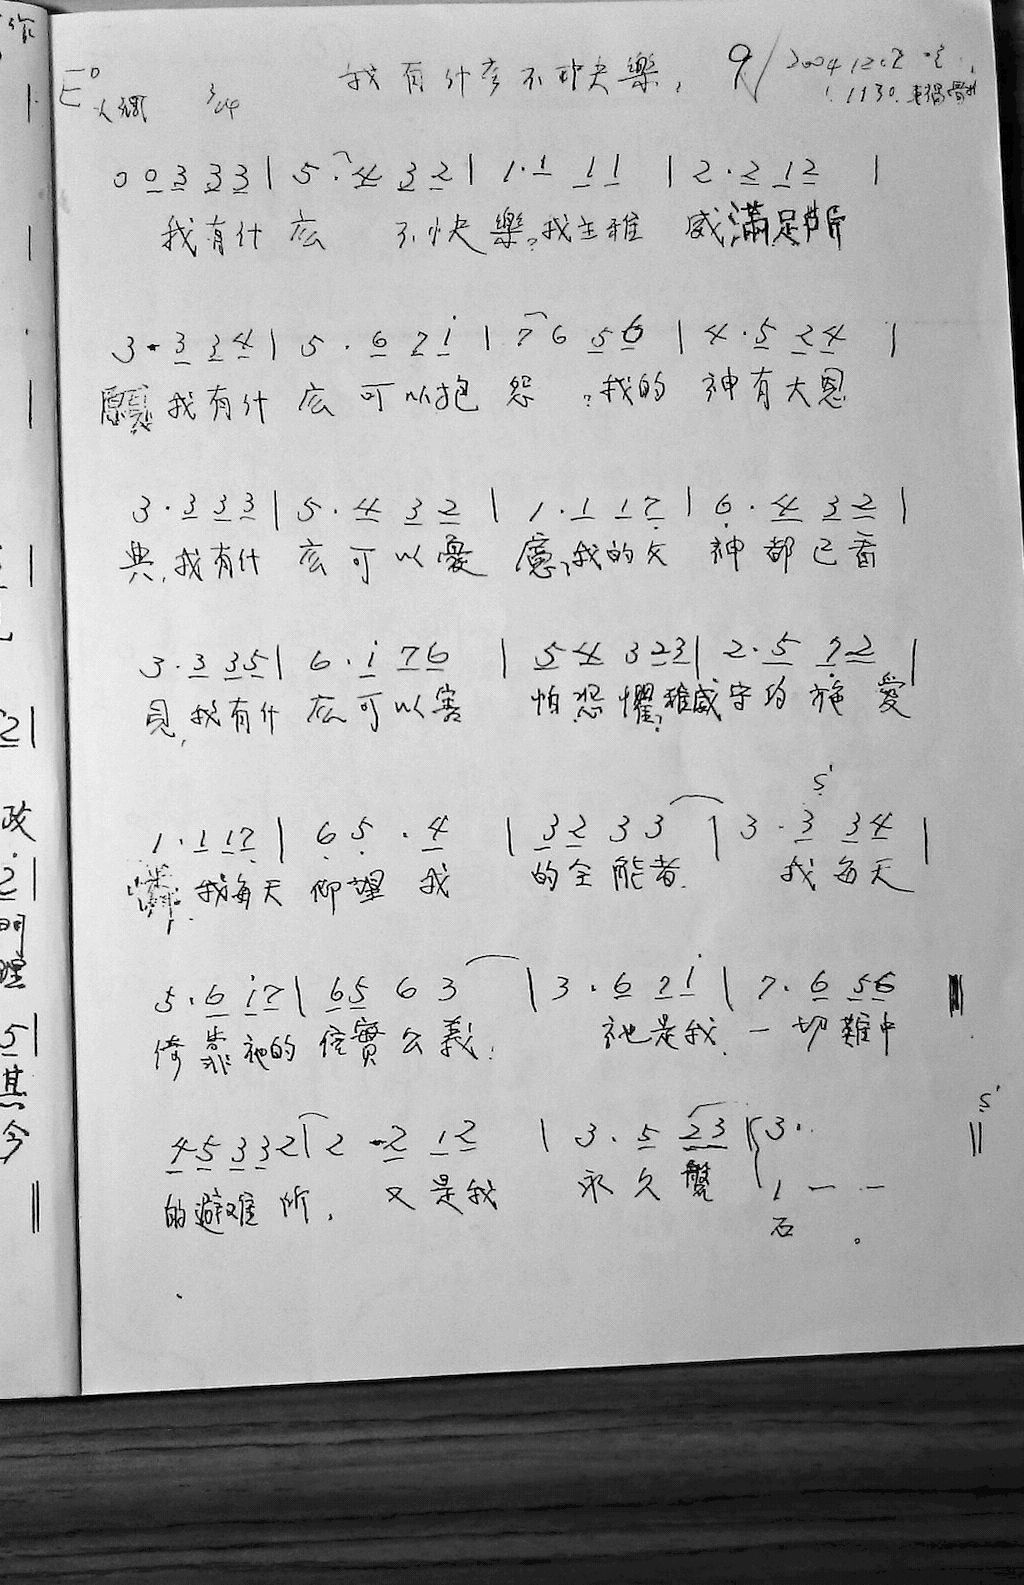 我有什麼不快樂, 9/ 2004.12.
E 3/4 1130.
0 0 3 3 3 | 5 · 4 3 2 | 1 · 1 1 1 | 2 · 2 1 2 |
我有什 庅 不快樂?我主雅 威滿足所
3 · 3 3 4 | 5 · 6 7 i | 7 6 5 6 | 4 · 5 2 4 |
願,我有什 庅 可以抱 怨 ?我的 神有大恩
3 · 3 3 3 | 5 · 4 3 2 | 1 · 1 1 7 | 6 · 4 3 2 |
典,我有什 庅 可以憂 慮?我的父 神都已看
3 · 3 3 5 | 6 · i 7 6 | 5 4 3 2 3 | 2 · 5 7 2 |
見,我有什 庅可以害 怕恐懼?雅威守約施愛
S'
1 · 1 1 7 | 6 5 · 4 | 3 2 3 3 | 3 · 3 3 4 |
我每天 仰望 我 的全能者. 我每天
5 · 6 i 7 | 6 5 6 3 | 3 · 6 7 i | 7 · 6 5 6
倚靠祂的信實公義. 祂是我 一切難中
S'
4 5 3 3 2 | 2 · 2 1 2 | 3 · 5 2 3 | 3 ·
的避难所, 又是我 永久磐 1 — —
石 。
政
2 |
明
理
5 |
其
今